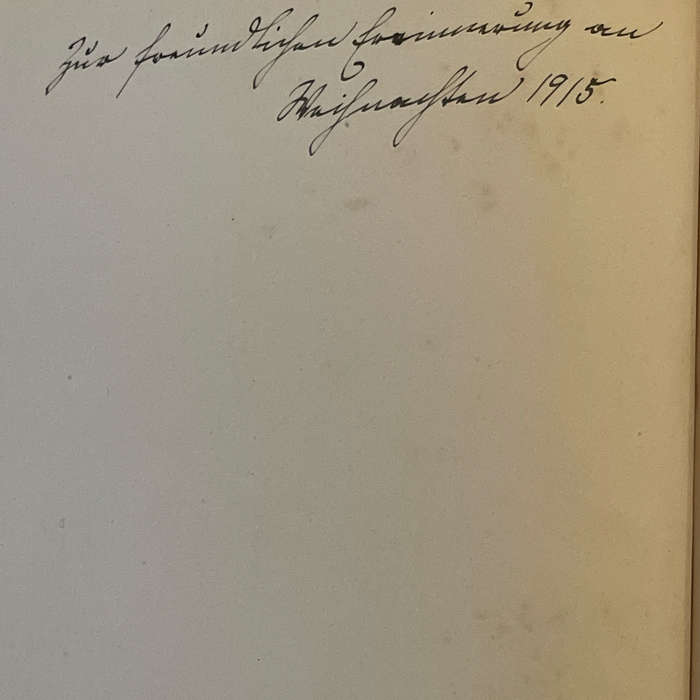 Zur freundlichen Erinnerung an
Weihnachten 1915.